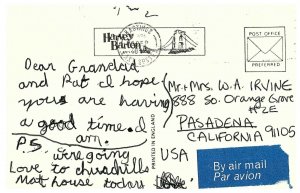 Harvey
Barton
POST OFFICE
PREFERRED
Dear Grandad
and Pat I hope
you are having
a good time. I
am.
P.S
we're going
Love to churchill
Mat house today
PRINTED IN ENGLAND
Mr + Mrs. W.A. IRVINE
888 So. Orange Grove
#2E
PASADENA
CALIFORNIA 91105
USA
By air mail
Par avion